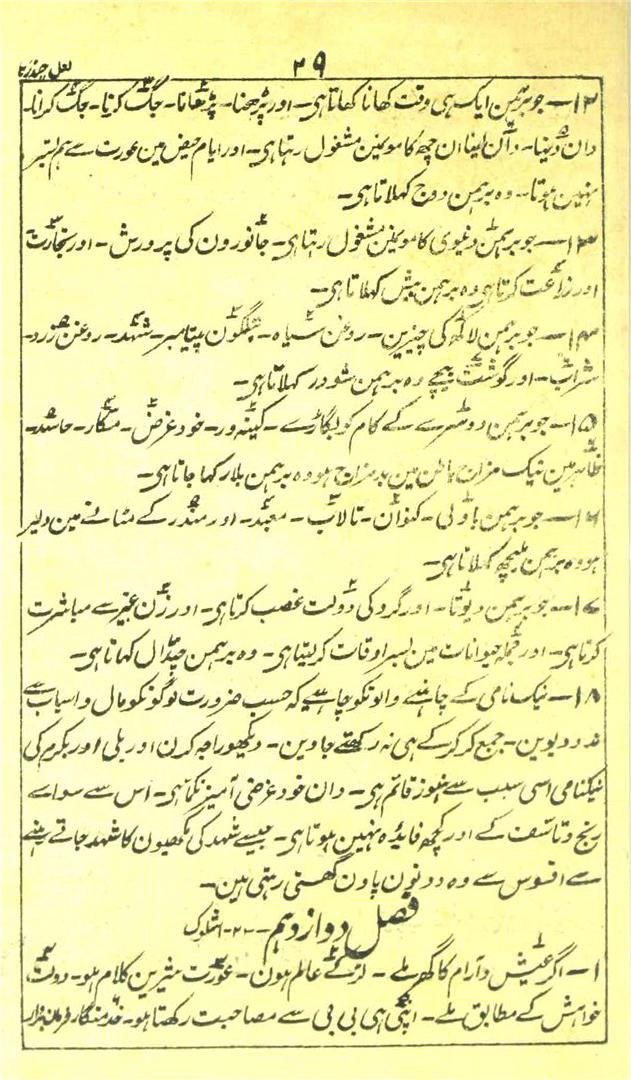 ۲۹
۱۲— جو برہمن ایک ہی وقت کھانا کھاتا ہی۔ اور پڑھنا۔ پڑھانا۔ جگ کرنا۔ جگ کرانا۔
دان دینا۔ دان لینا ان چھ کامونمین مشغول رہتا ہی۔ اور ایام حیض مین عورت سے ہم بستر
نہین ہوتا۔ وہ برہمن دوج کہلاتا ہی۔
۱۳— جو برہمن دنیوی کامونمین مشغول رہتا ہی۔ جانورون کی پرورش۔ اور تجارت
اور زراعت کرتا ہی وہ برہمن بیش کہلاتا ہی۔
۱۴— جو برہمن لاکھ کی چیزین۔ روغن سیاہ۔ شہد۔ روغن زرد۔
شراب۔ اور گوشت بیچے وہ برہمن شودر کہلاتا ہی۔
۱۵— جو برہمن دوسرے کے کام کو بگاڑے۔ کینہ ور۔ خود غرض۔ مکار۔ حاسد۔
ظاہر مین نیک مزاج باطن مین بد مزاج ہو وہ برہمن بلار کہا جاتا ہی۔
۱۶— جو برہمن باولی۔ کنوان۔ تالاب۔ معبد۔ اور مندر کے مٹانے مین دلیر
ہو وہ برہمن ملیچھ کہلاتا ہی۔
۱۷— جو برہمن دیوتا۔ اور گرو کی دولت غصب کرتا ہی۔ اور زن غیر سے مباشرت
کرتا ہی۔ اور جملہ حیوانات مین بسر اوقات کر لیتا ہی۔ وہ برہمن چنڈال کہاتا ہی۔
۱۸— نیک نامی کے چاہنے والونکو چاہیے کہ حسب ضرورت لوگونکو مال و اسباب سے
مدد دیوین۔ جمع کر کر کے ہی نہ رکھتے جاوین۔ دیکھو راجہ کرن اور بلی اور بکرم کی
نیکنامی اسی سبب سے ہنوز قائم ہی۔ دان خود غرضی آمیز نکما ہی۔ اس سے سواے
رنج و تاسف کے اور کچھ فایدہ نہین ہوتا ہی۔ جیسے شہد کی مکھیون کا شہد جاتے رہنے
سے افسوس سے وہ دونون پاون گھستی رہتی ہین۔
فصل دوازدہم— ۲۲۔ اشلوک
۱— اگر عیش و آرام کا گھر ملے۔ لڑکے عالم ہون۔ عورت شیرین کلام ہو۔ دولت
خواہش کے مطابق ملے۔ اپنی ہی بی بی سے مصاحبت رکھتا ہو۔ خدمتگار فرمان بردار